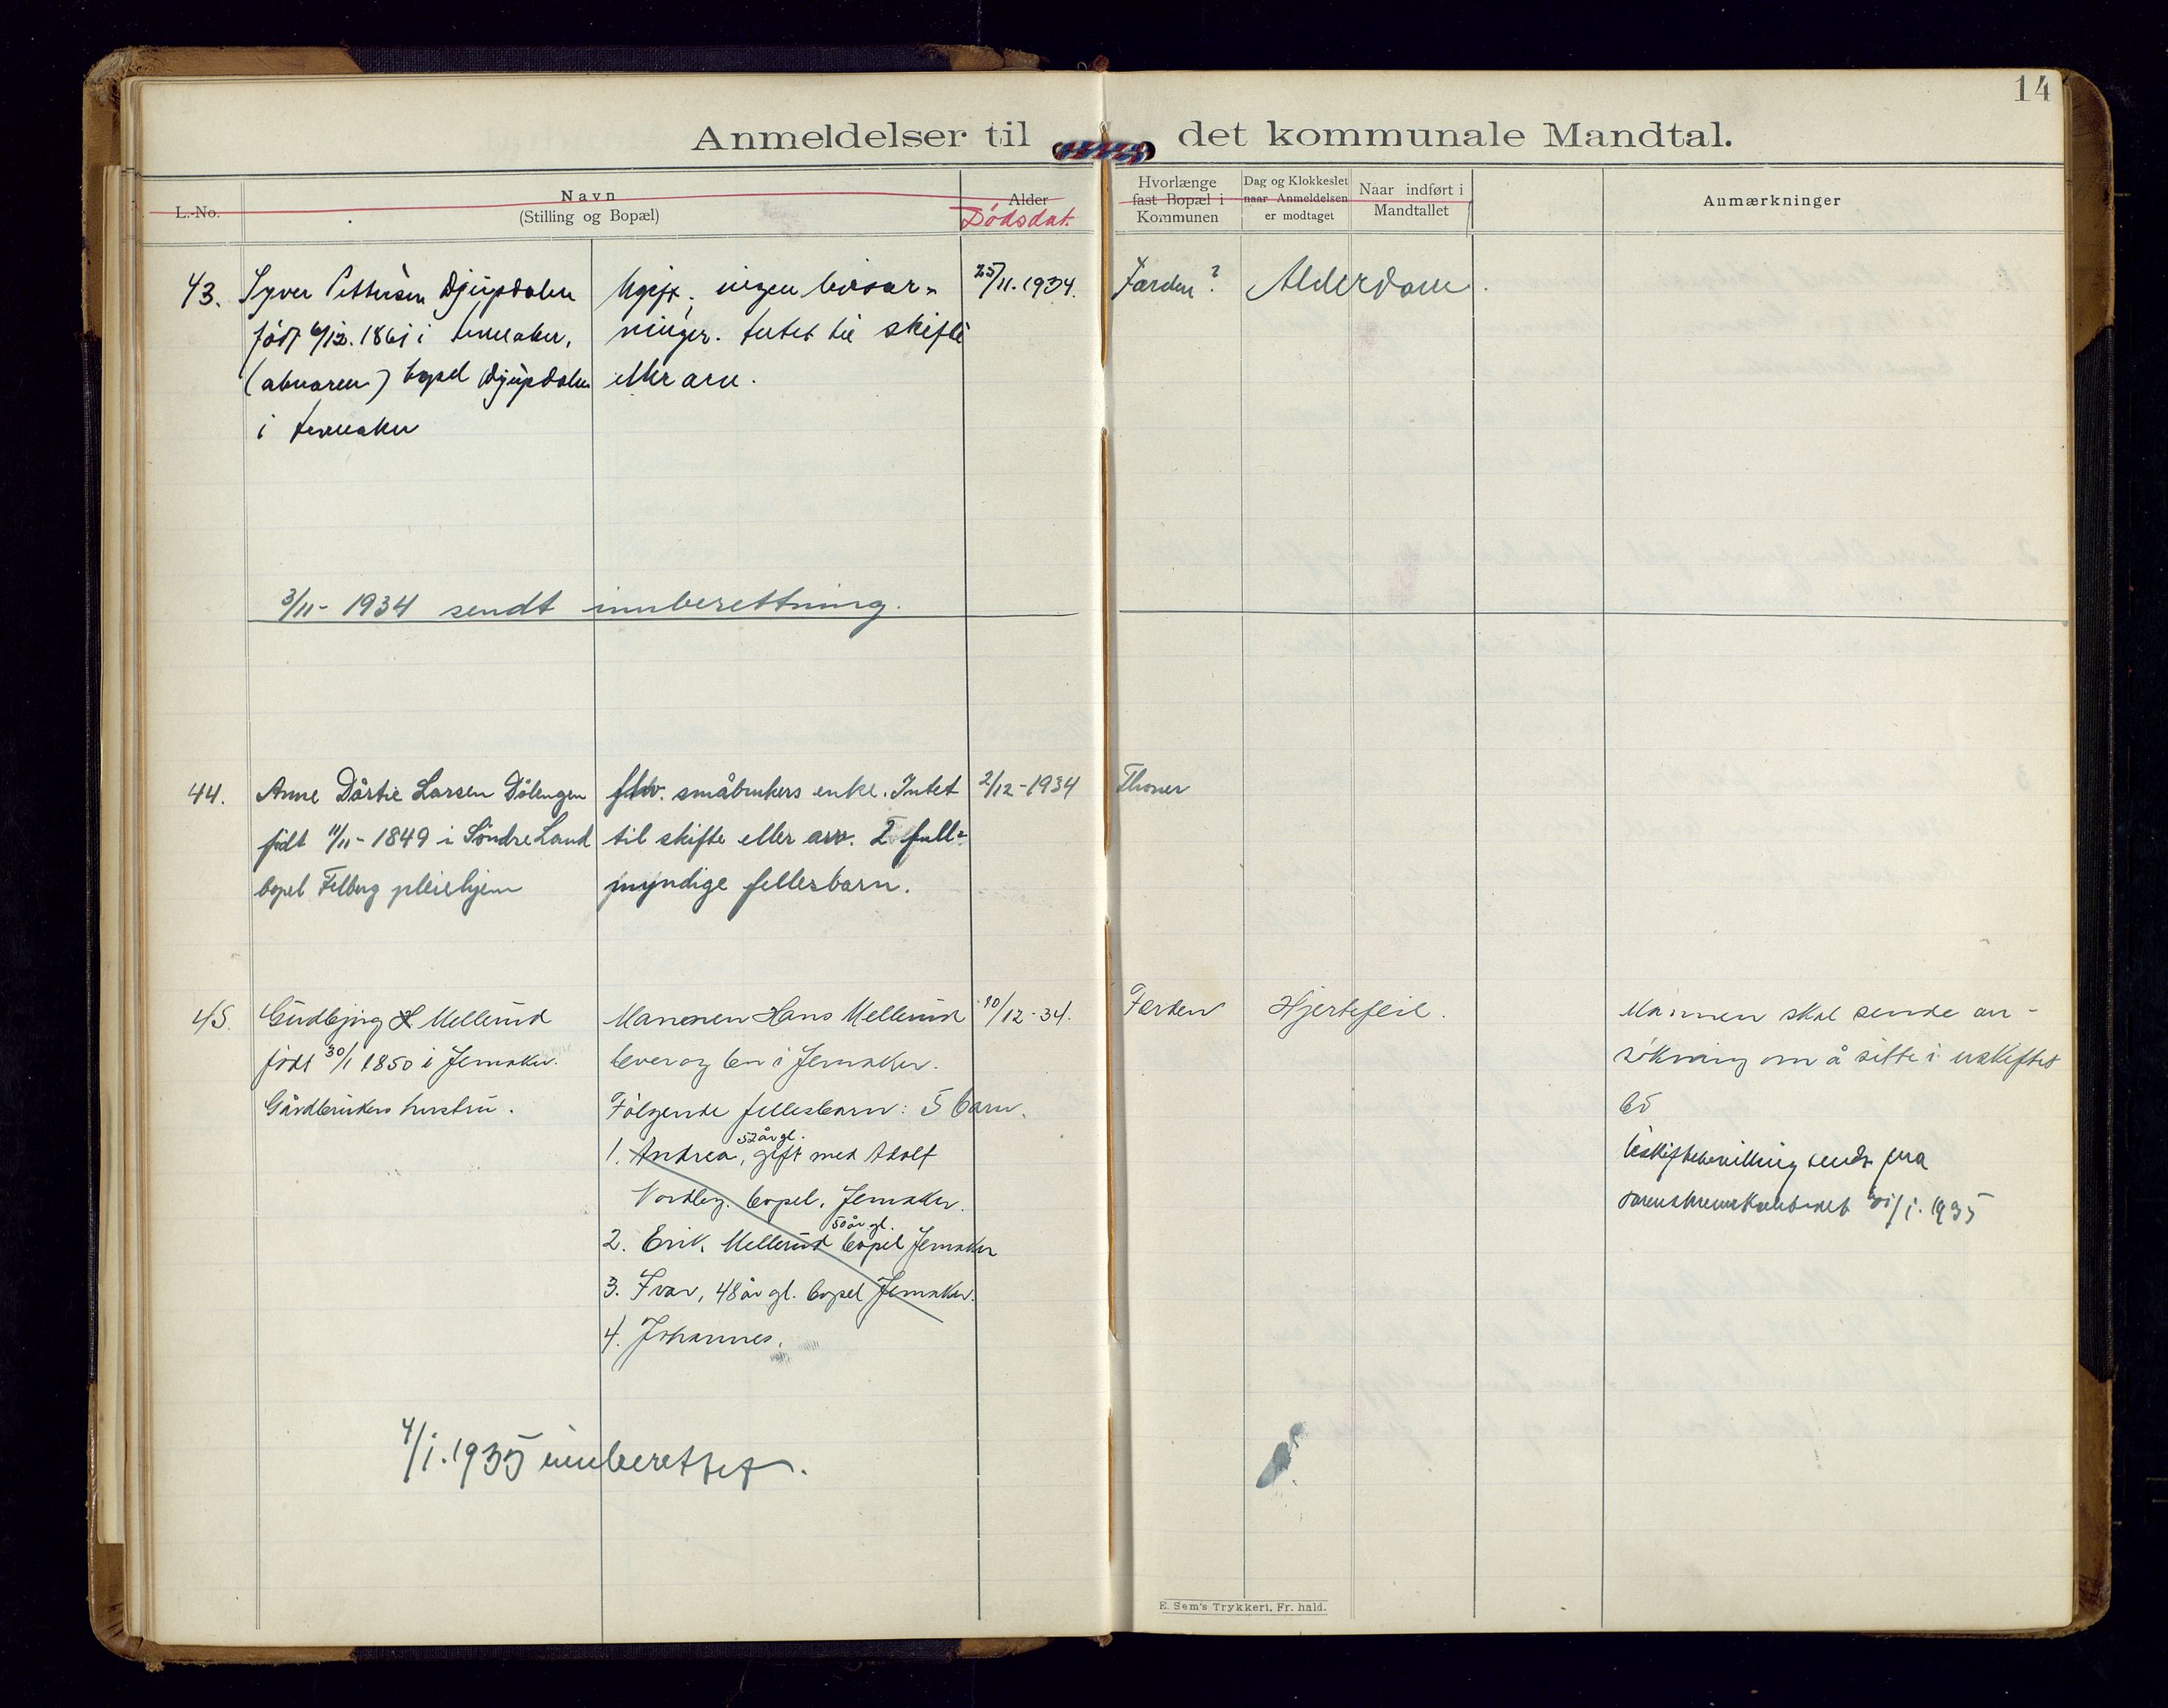 14
Anmeldelser til det kommunale Mandtal.
L.-No.
Navn
(Stilling og Bopæl)
Alder
Dødsdat.
Hvorlænge
fast Bopæl i
Kommunen
Dag og Klokkeslet
naar Anmeldelsen
er modtaget
Naar indført i
Mandtallet
Anmærkninger
43.
Syver Pettersen Djupdalen
født 6/12. 1861 i Jevnaker,
bopel Djupdalen
i Jevnaker
Ugift, ingen livsar-
vinger. Intet til skifte
eller arv.
25/11. 1934.
Færden?
Alderdom.
3/11- 1934 sendt innberettning.
44.
Anne Dårtie Larsen Dølengen
født 11/11- 1849 i Søndre Land
bopel Felberg pleiehjem
småbrukers enke. Intet
til skifte eller arv. 2 full-
myndige fellesbarn.
2/12-1934
Thoner
45.
Gudbjørg H Mellerud
født 30/1 1850 i Jevnaker.
Gårdbrukers hustru.
Mannen Hans Mellerud
lever og bor i Jevnaker.
Følgende fellesbarn: 5 barn.
1. Andrea, 52 år gl. gift med Adolf
Nordby, bopel, Jevnaker.
2. Erik Mellerud 50 år gl. bopel Jevnaker
3. Ivar, 48 år gl. bopel Jevnaker.
4. Johannes,
10/12-34.
Færden
Hjertefeil.
Mannen skal sende an-
søkning om å sitte i uskiftet
bo
Uskiftebevilling sendt fra
sorenskriverkontoret /1. 1935
4/1. 1935 innberettet.
E. Sem's Trykkeri, Fr. hald.